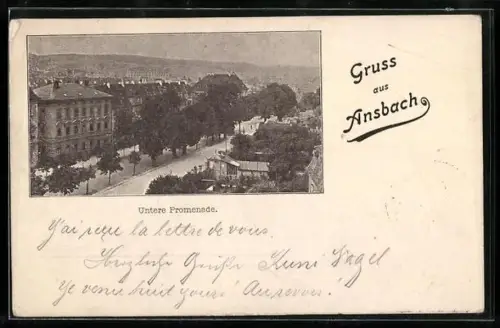 Gruss
aus
Ansbach
Untere Promenade.
J'ai reçu la lettre de vous.
Herzliche Grüße Kuni
Je venir huit jours! Au revoir!